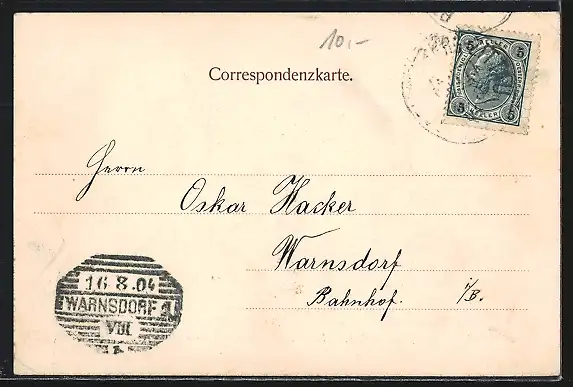 10.-
5 HELLER 5
Correspondenzkarte.
5 HELLER 5
Herrn
Oskar Hacker
Warnsdorf
Bahnhof. i/B.
16.8.04
WARNSDORF 1
VIII